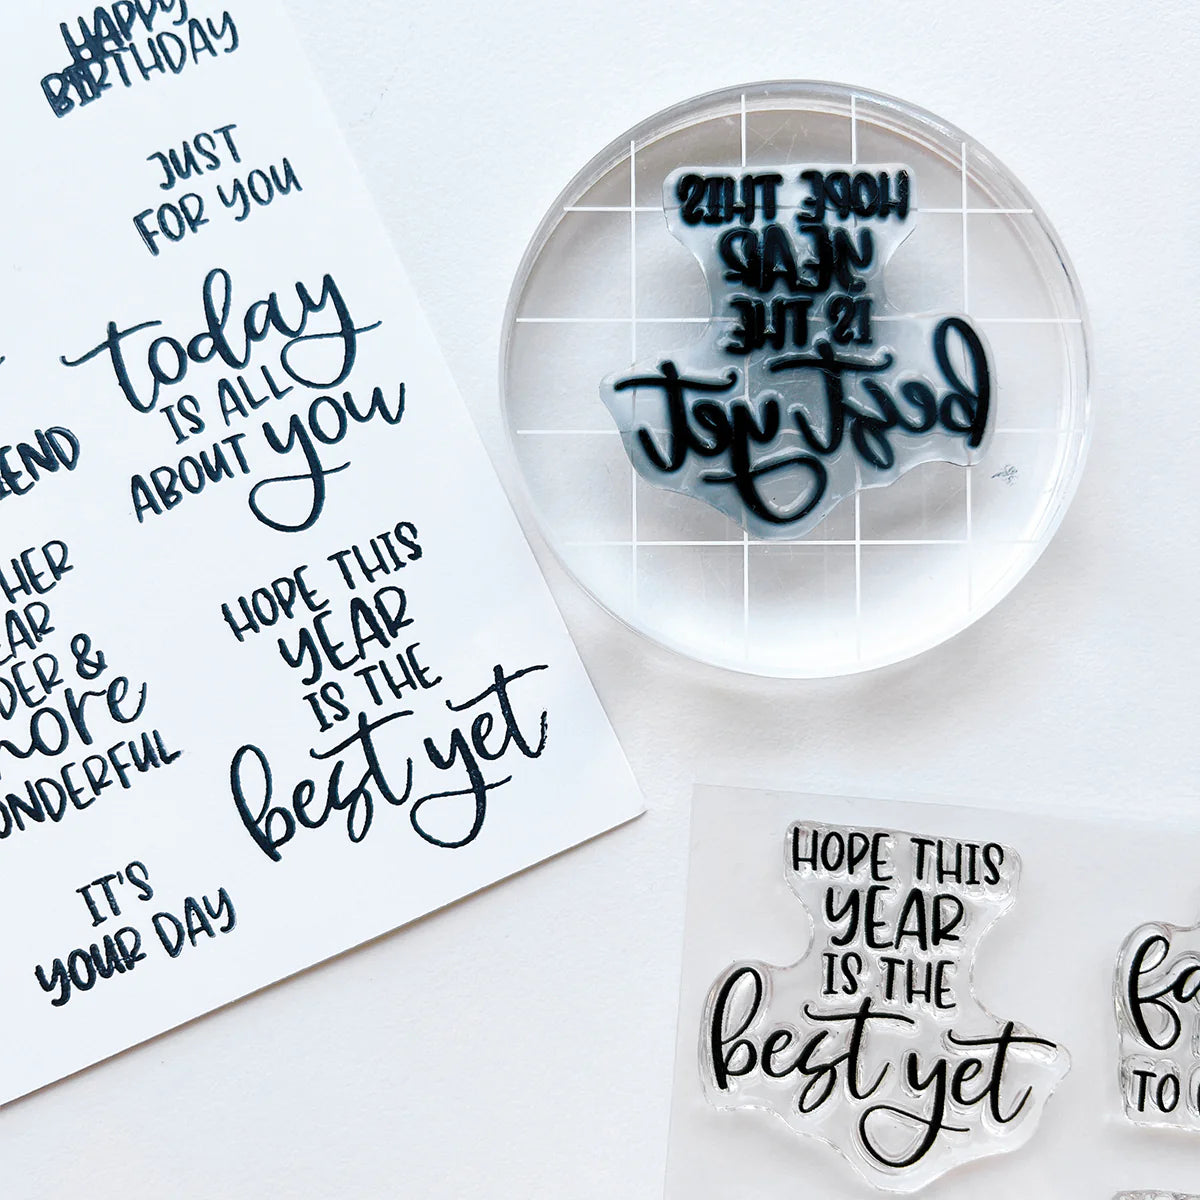 HAPPY
BIRTHDAY
JUST
FOR YOU
today
IS ALL
ABOUT you
HOPE THIS
YEAR
IS THE
best yet
more
IT'S
YOUR DAY
HOPE THIS
YEAR
IS THE
best yet
HOPE THIS
YEAR
IS THE
best yet
TO